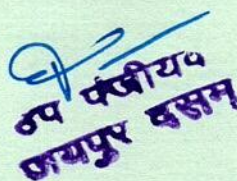 उप पंजीय०
जयपुर दसम्